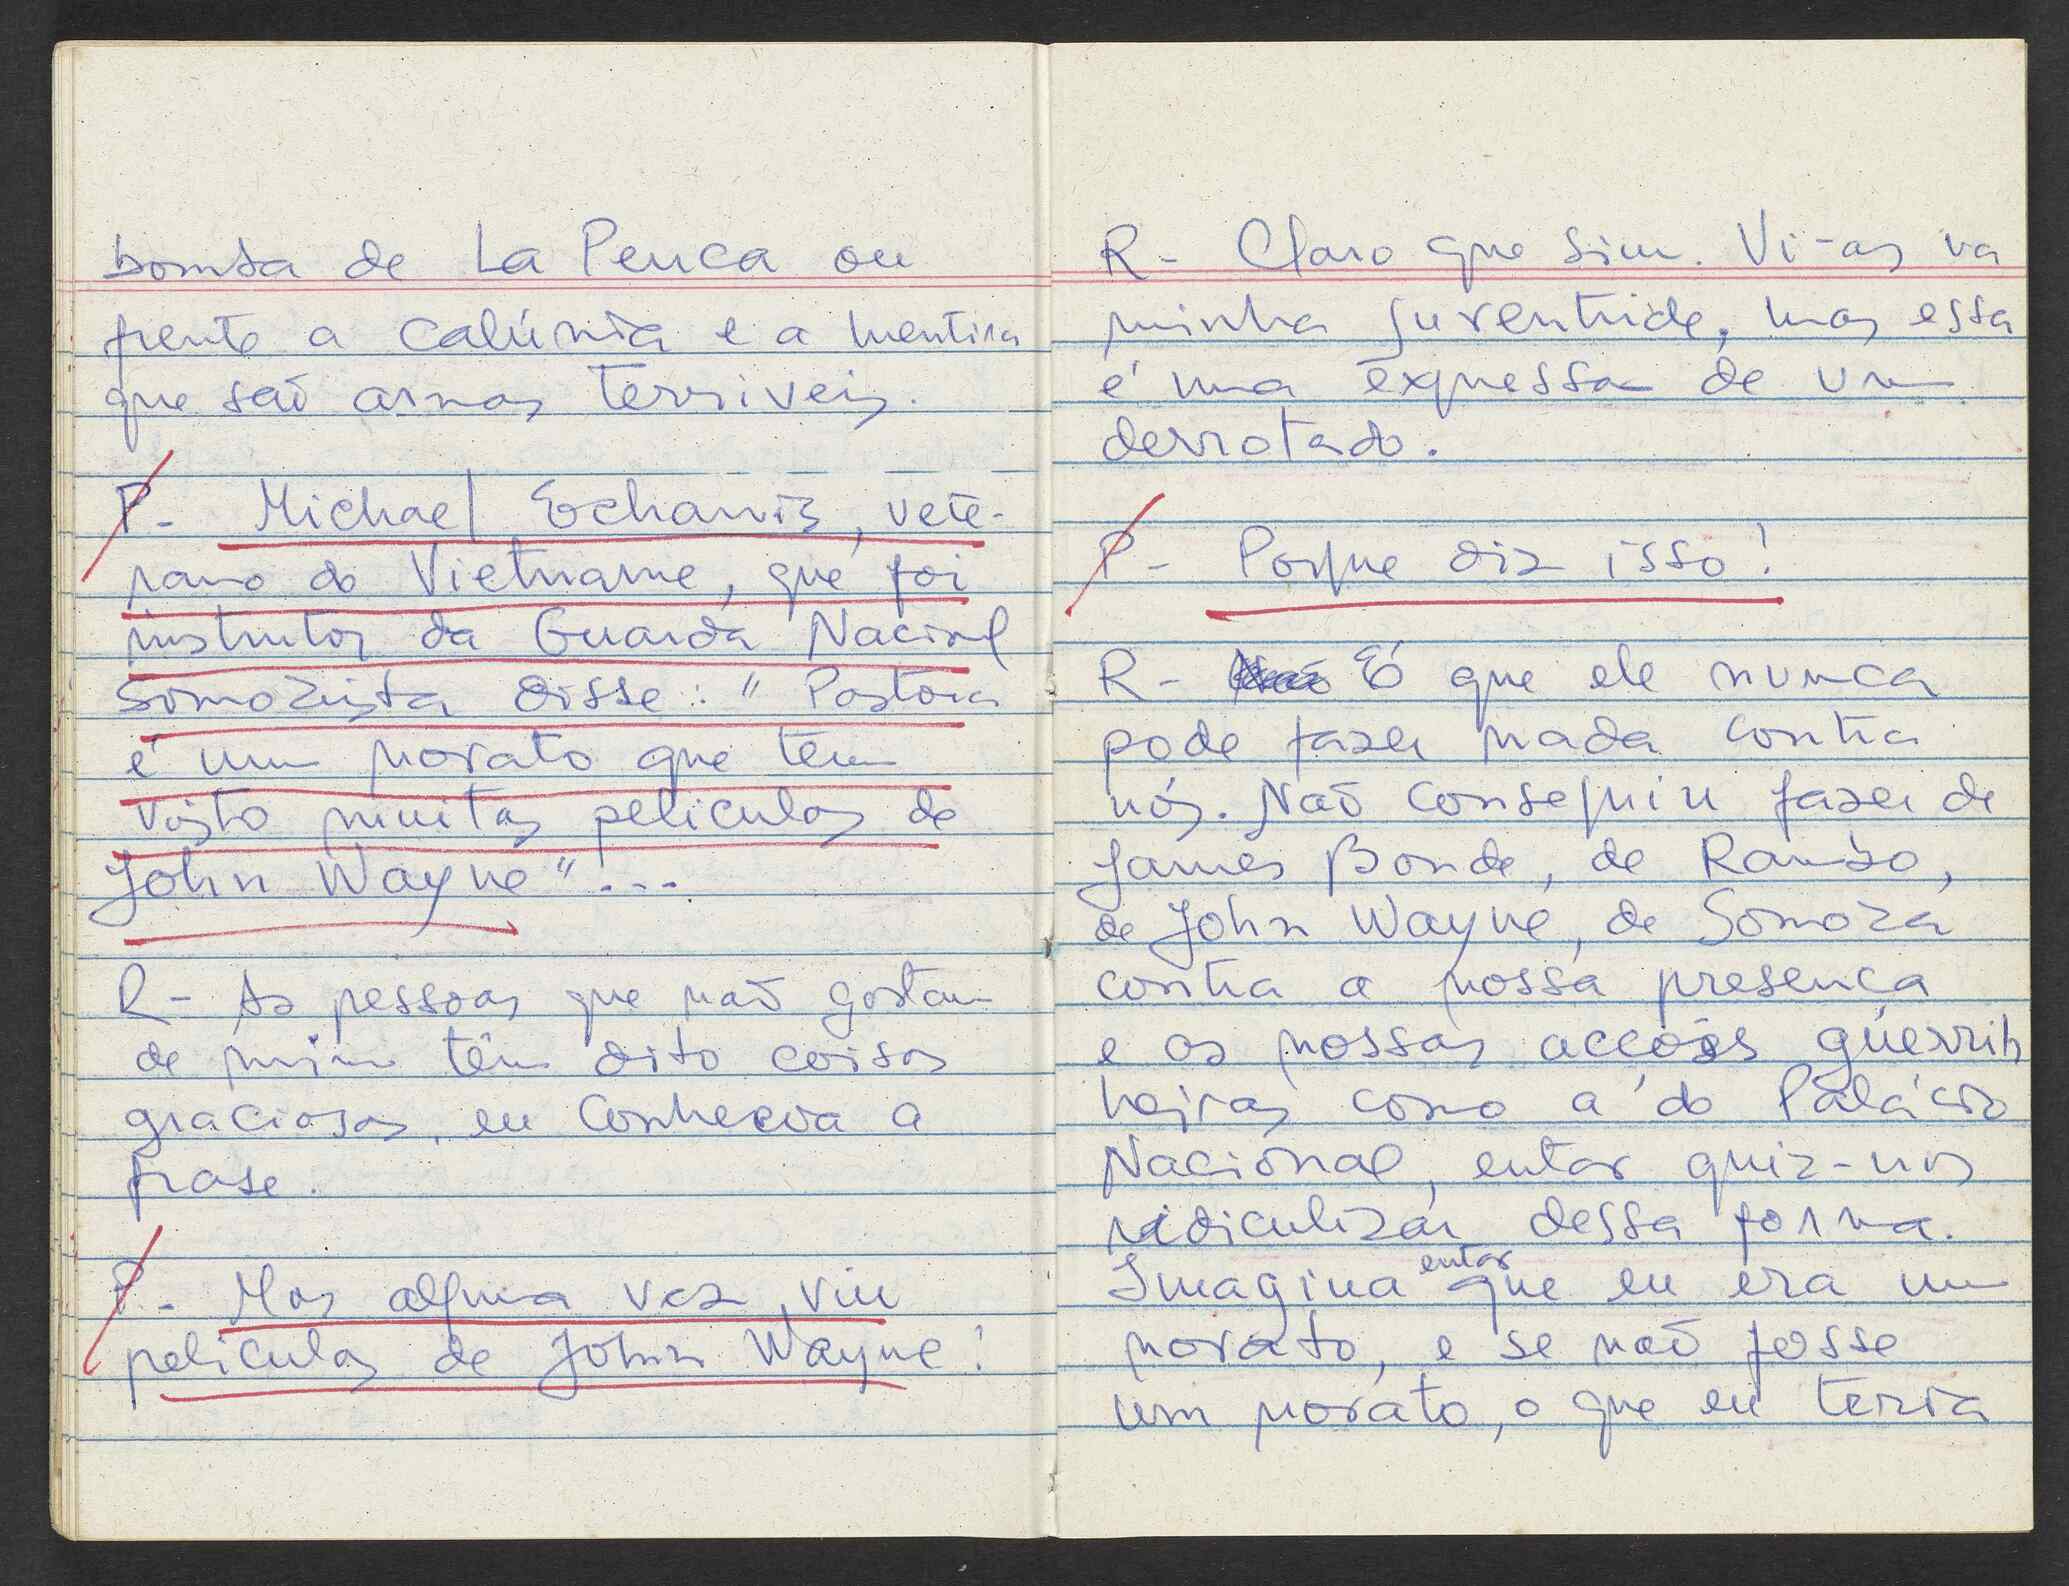 bomba de La Penca ou
frente a calúnia e a mentira
que saõ armas terriveis.
P- Michael Echaniz, vete-
rano do Vietname, que foi
instrutor da Guarda Nacional
Somozista disse: " Pastora
é um novato que tem
visto muitas peliculas de
John Wayne"...
R- As pessoas que naõ gostam
de mim têm dito coisas
graciosas, eu conhecia a
frase.
P- Mas alguma vez viu
peliculas de John Wayne?
R- Claro que sim. Vi-as na
minha juventude, mas essa
é uma expressa de um
derrotado.
P- Porque diz isso?
R- É que ele nunca
pode fazer nada contra
nós. Naõ conseguiu fazer de
James Bonde, de Rambo,
de John Wayne, de Somoza
contra a nossa presença
e as nossas acçoẽs guerrilh
heiras como a do Palácio
Nacional, entao quiz-nos
ridiculizar dessa forma.
Imagina entao que eu era um
novato, e se naõ fosse
um novato, o que eu teria